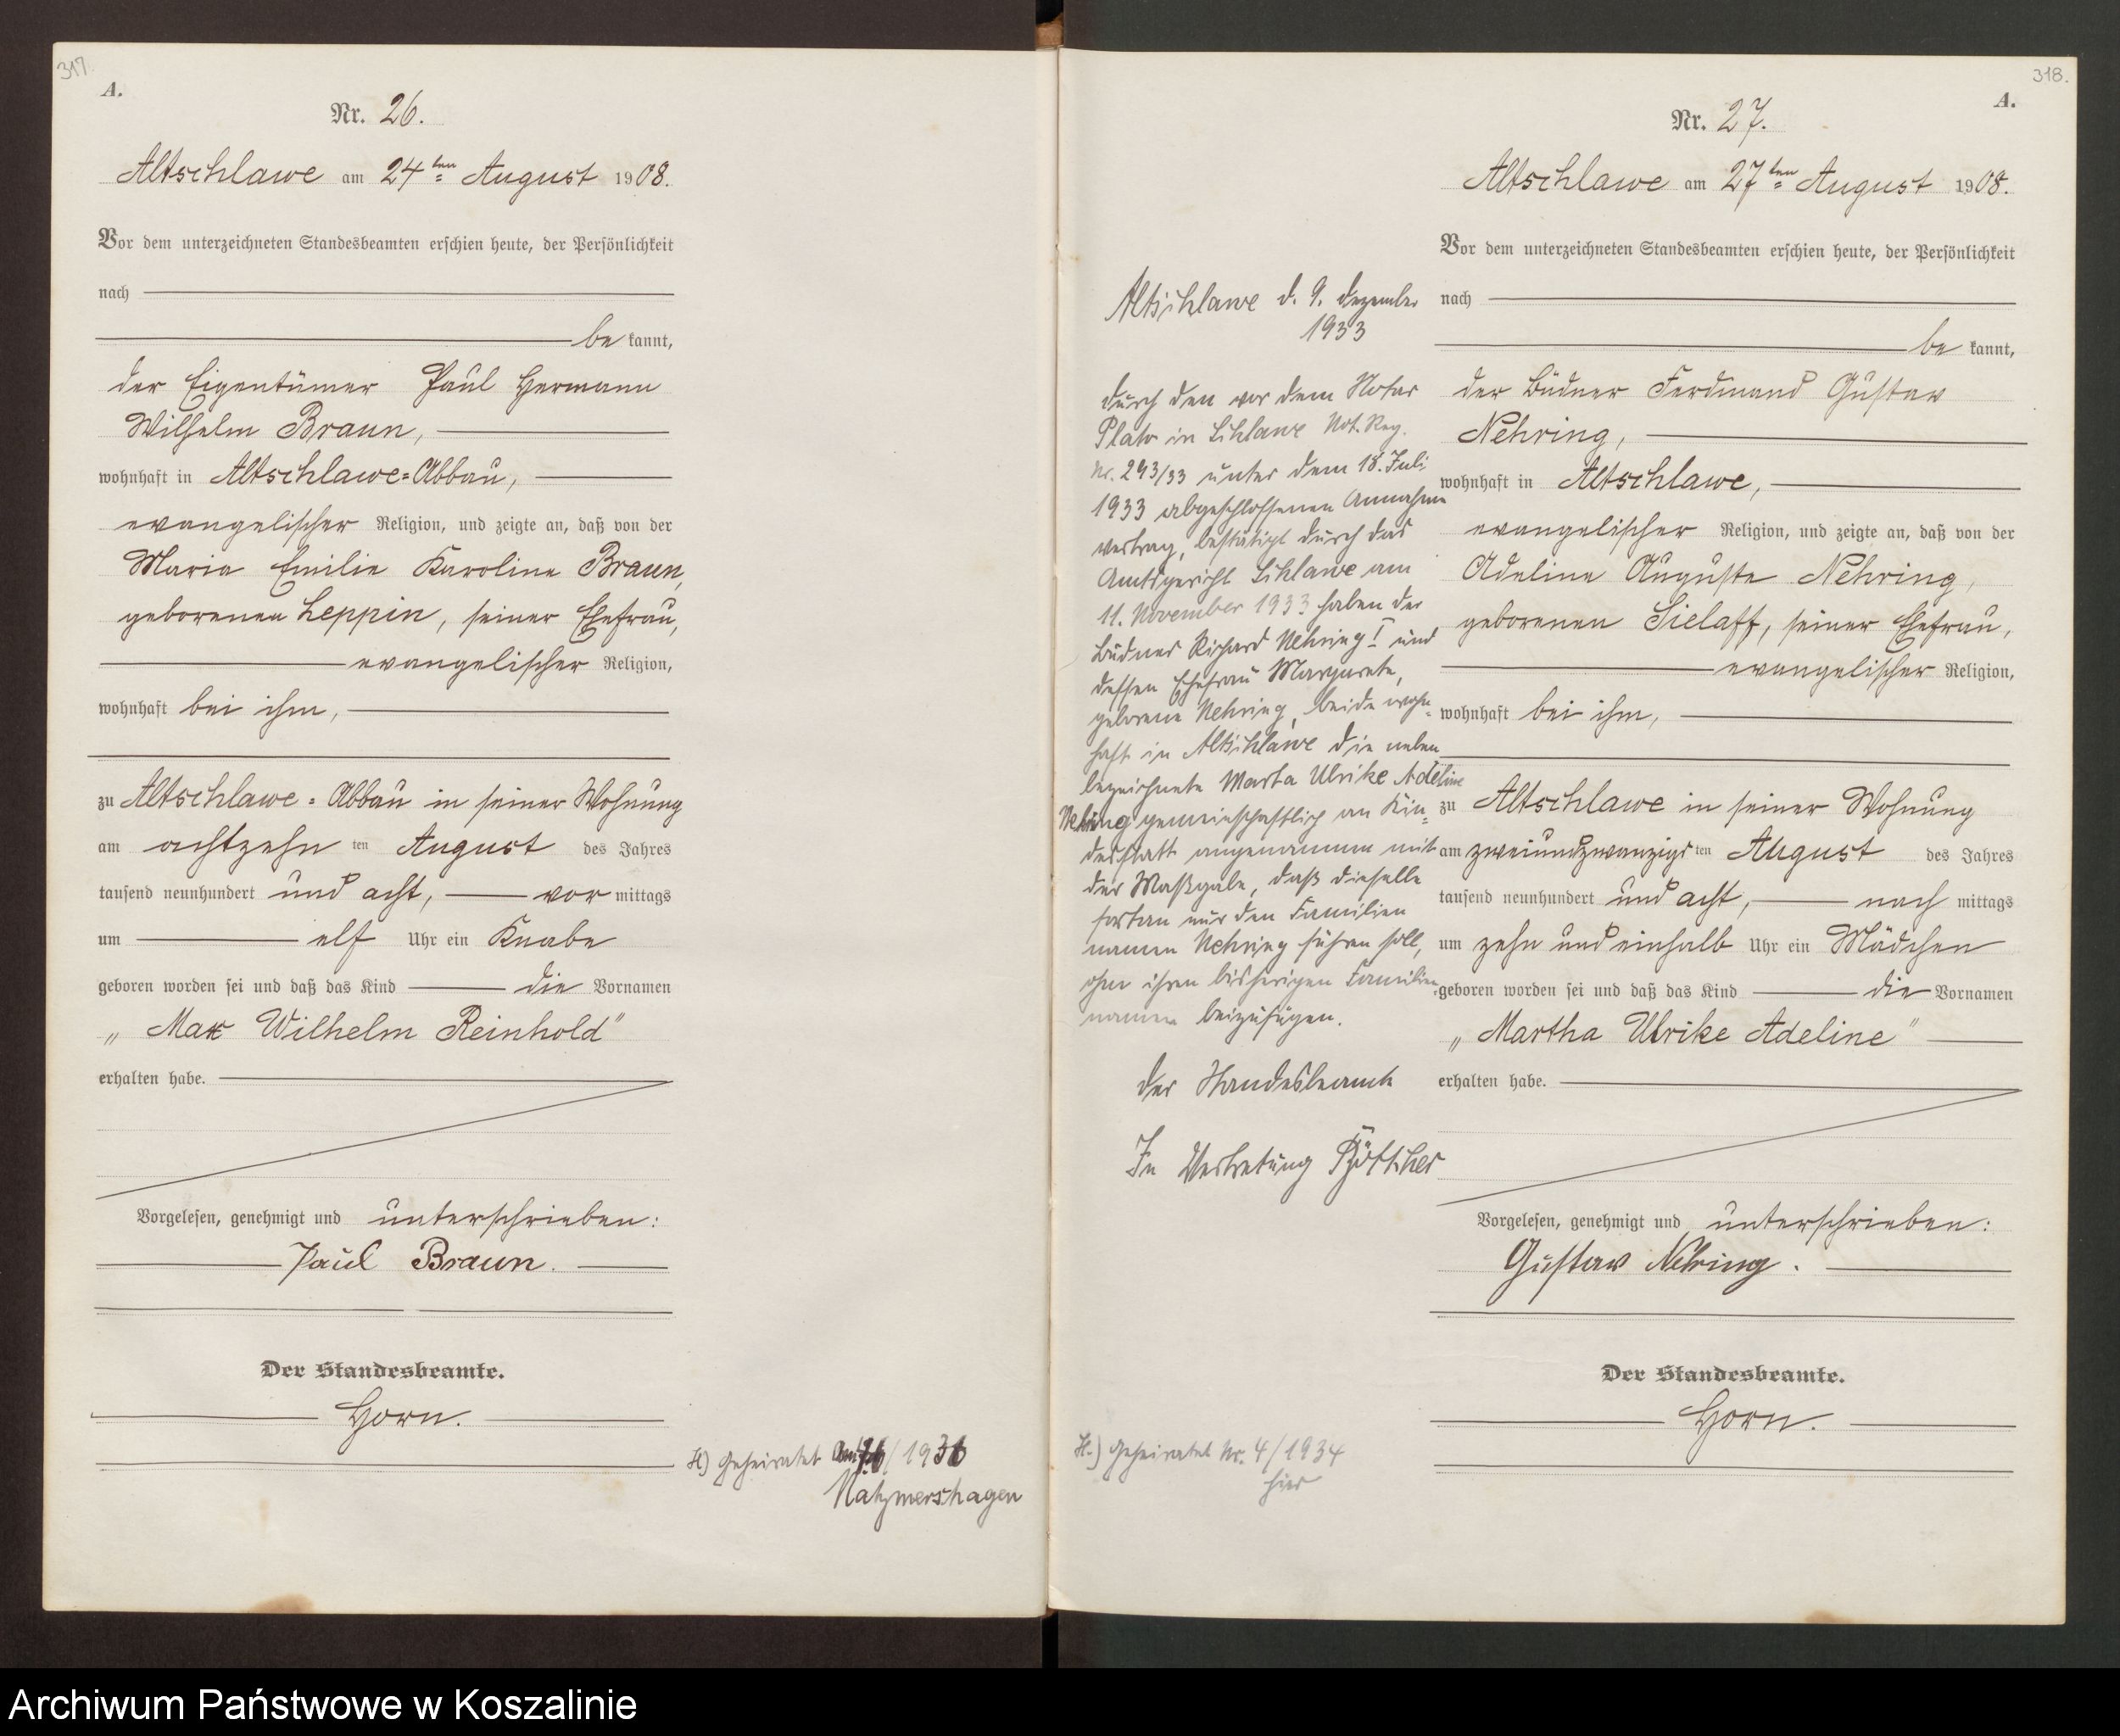 317.
A.
Nr. 26.
Altschlawe am 24ten August 1908.
Vor dem unterzeichneten Standesbeamten erschien heute, der Persönlichkeit
nach
be kannt,
der Eigentümer Paul Hermann
Wilhelm Braun,
wohnhaft in Altschlawe=Abbau,
evangelischer Religion, und zeigte an, daß von der
Maria Emilie Karoline Braun,
geborenen Leppin, seiner Ehefrau,
evangelischer Religion,
wohnhaft bei ihm,
zu Altschlawe=Abbau in seiner Wohnung
am achtzehn ten August des Jahres
tausend neunhundert und acht, vor mittags
um elf Uhr ein Knabe
geboren worden sei und daß das Kind die Vornamen
„Max Wilhelm Reinhold"
erhalten habe.
Vorgelesen, genehmigt und unterschrieben:
Paul Braun.
Der Standesbeamte.
Horn.
H) Geheiratet /1936
Natzmershagen
318.
A.
Nr. 27.
Altschlawe am 27ten August 1908.
Vor dem unterzeichneten Standesbeamten erschien heute, der Persönlichkeit
nach
be kannt,
der Büdner Ferdinand Gustav
Nehring,
wohnhaft in Altschlawe,
evangelischer Religion, und zeigte an, daß von der
Adeline Auguste Nehring,
geborenen Sielaff, seiner Ehefrau,
evangelischer Religion,
wohnhaft bei ihm,
zu Altschlawe in seiner Wohnung
am zweiundzwanzigs ten August des Jahres
tausend neunhundert und acht, nach mittags
um zehn und einhalb Uhr ein Mädchen
geboren worden sei und daß das Kind die Vornamen
„Martha Ulrike Adeline"
erhalten habe.
Vorgelesen, genehmigt und unterschrieben:
Gustav Nehring.
Der Standesbeamte.
Horn.
Altschlawe d. 9. Dezember
1933
Durch den vor dem Notar
Plato in Schlawe Not. Reg.
Nr. 293/33 unter dem 18. Juli
1933 abgeschlossenen Annahme
vertrag, bestätigt durch das
Amtsgericht Schlawe am
11. November 1933 haben der
Büdner Richard Nehring I und
dessen Ehefrau Margarete,
geborene Nehring, beide wohn=
haft in Altschlawe die neben
bezeichnete Marta Ulrike Adeline
Nehring gemeinschaftlich an Kin=
desstatt angenommen mit
der Maßgabe, daß dieselbe
fortan nur den Familien
namen Nehring führen soll,
ohne ihren bisherigen Familien
namen beizufügen.
Der Standesbeamte
In Vertretung Böttcher
H.) Geheiratet Nr. 4/1934
hier
Archiwum Państwowe w Koszalinie